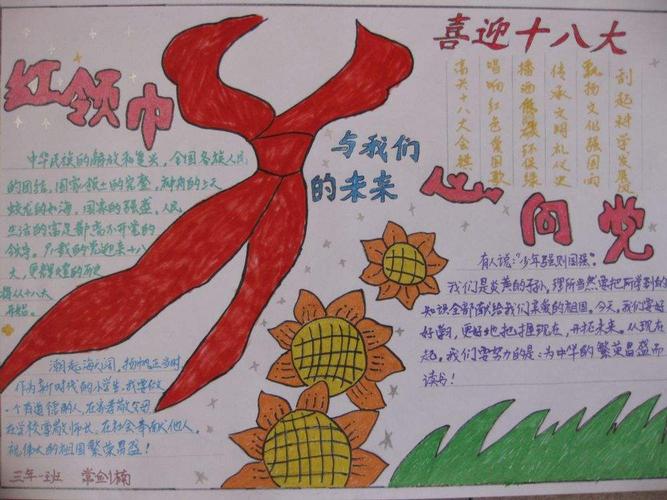 红领巾
心向党
喜迎十八大
刮起科学发展风
飘扬文化强国雨
传承文明礼仪史
播洒环保绿
唱响红色爱国歌
高兴十八大会
与我们
的未来
中华民族的解放和复兴,全国各族人民
的团结,国家领土的完整,神舟的上天
蛟龙的如海,国家的强盛,人民
生活的富足都离不开党的
领导。91载的党迎来十八
大,更辉煌的历史
将从十八大
开始。
有人说:“少年强则国强”。
我们是炎黄的子孙,理所当然要把所学到的
知识全部献给我们亲爱的祖国。今天,我们要好
好学习,更好地把握现在,开拓未来。从现在
起,我们要努力的是:为中华的繁荣昌盛而
读书!
潮起海天阔,扬帆正当时
作为新时代的小学生,我要做
一个有道德的人,在家孝敬父母
在学校尊敬师长,在社会奉献他人。
祝伟大的祖国繁荣昌盛!
三年一班 常剑楠